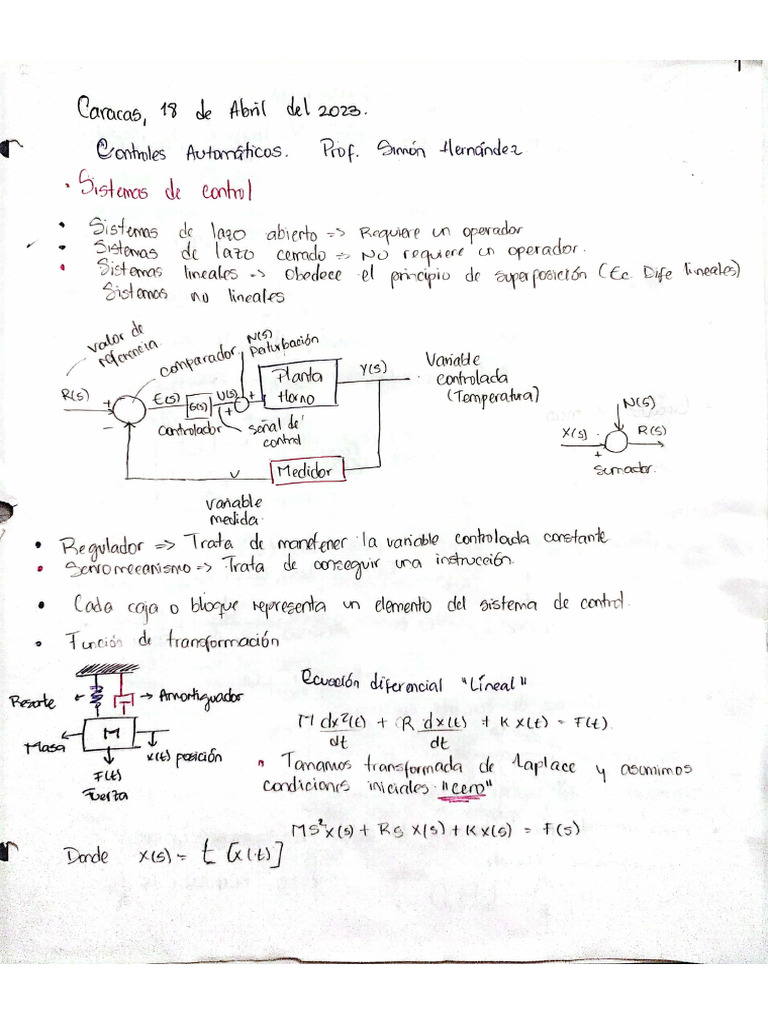 1
Caracas, 18 de Abril del 2023.
Controles Automáticos. Prof. Simón Hernández
• Sistemas de control
• Sistemas de lazo abierto => Requiere un operador
• Sistemas de lazo cerrado => No requiere un operador.
• Sistemas lineales => Obedece el principio de superposición (Ec. Dife lineales)
Sistemas no lineales
valor de
referencia
comparador
N(s)
Perturbación
R(s)
+
-
E(s)
G(s)
controlador
U(s)
+
+
señal de
control
Planta
Horno
Y(s)
Variable
controlada
(Temperatura)
Medidor
V
variable
medida
N(s)
X(s)
+
R(s)
Sumador.
• Regulador => Trata de mantener la variable controlada constante
• Servomecanismo => Trata de conseguir una instrucción.
• Cada caja o bloque representa un elemento del sistema de control.
• Función de transformación
Resorte
Amortiguador
M
Masa
x(t) posición
F(t)
Fuerza
Ecuación diferencial "Líneal"
M dx²(t)/dt + R dx(t)/dt + K x(t) = F(t).
• Tomamos transformada de Laplace y asumimos
condiciones iniciales "cero"
MS² X(s) + RS X(s) + K X(s) = F(s)
Donde X(s) = t [x(t)]